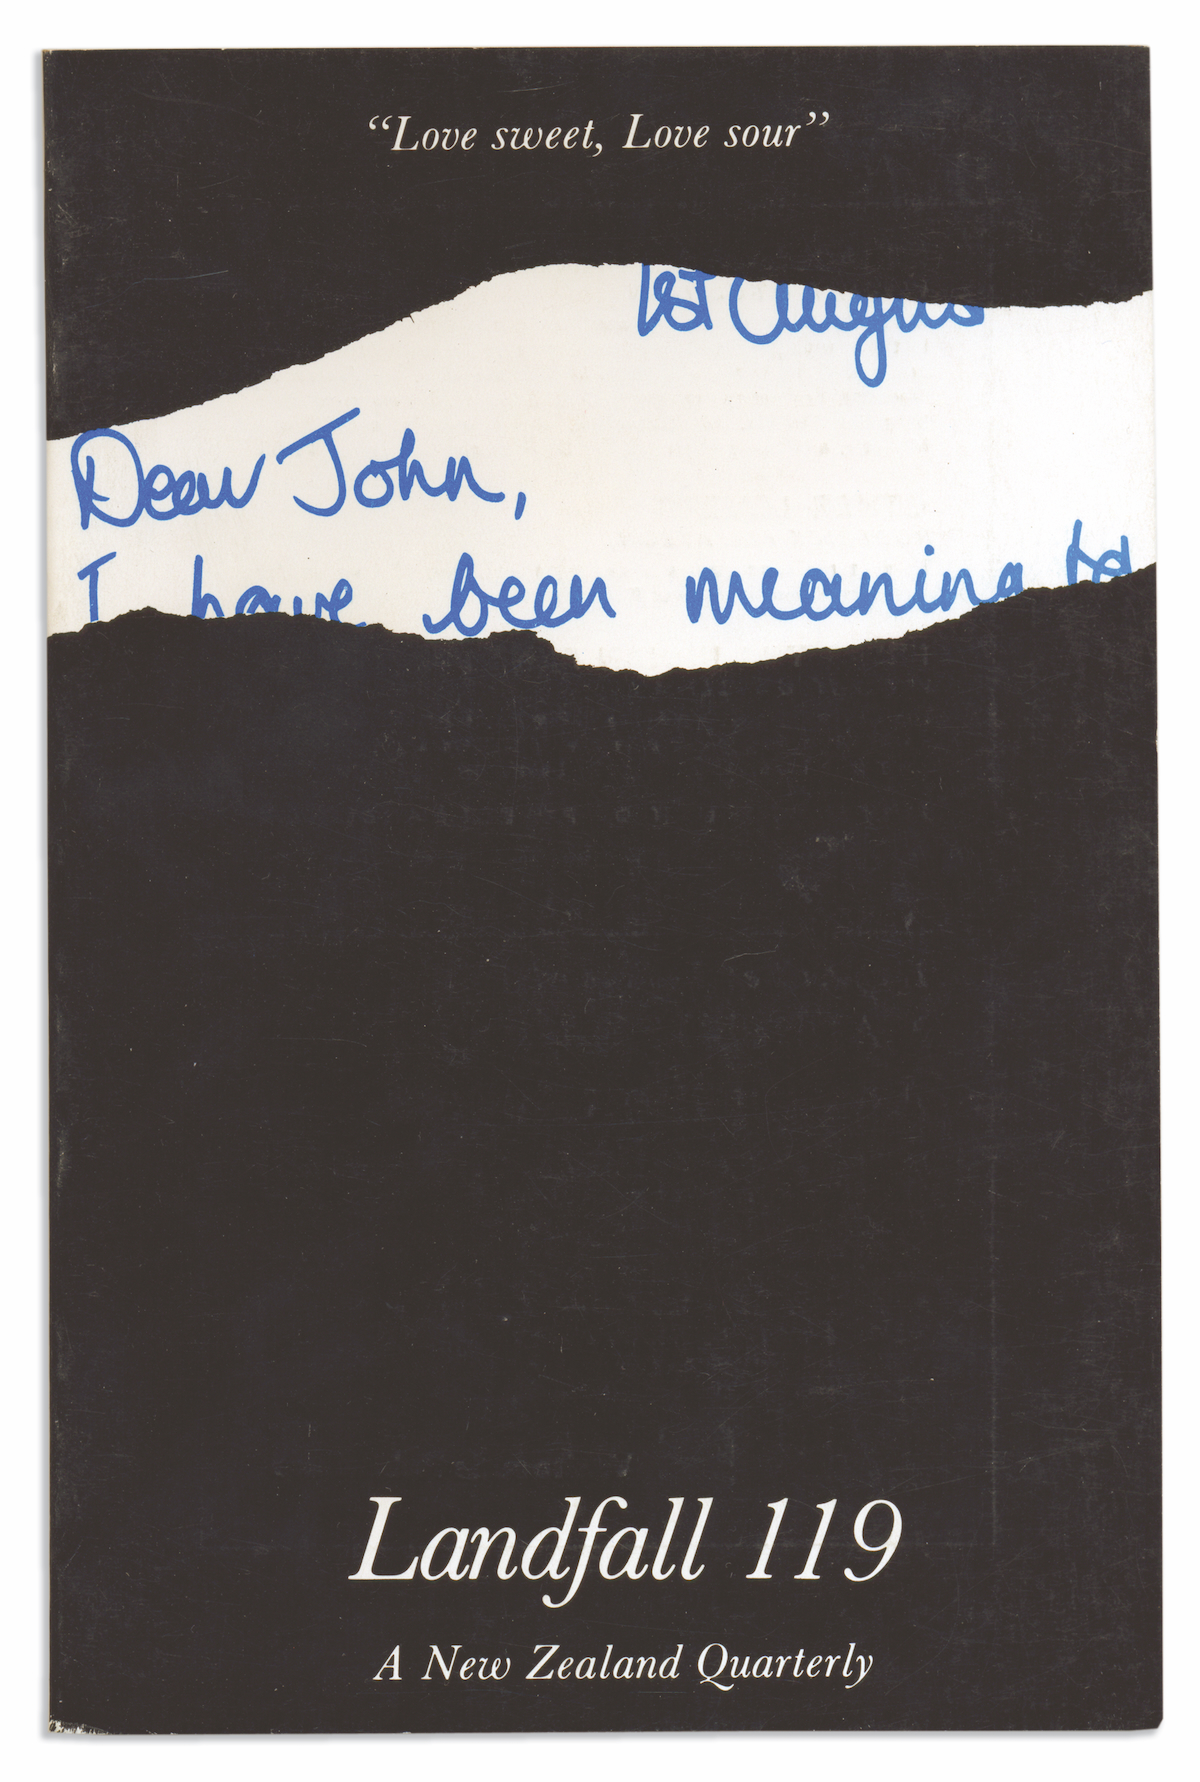 “Love sweet, Love sour”
1st Augus
Dear John,
I have been meaning to
Landfall 119
A New Zealand Quarterly